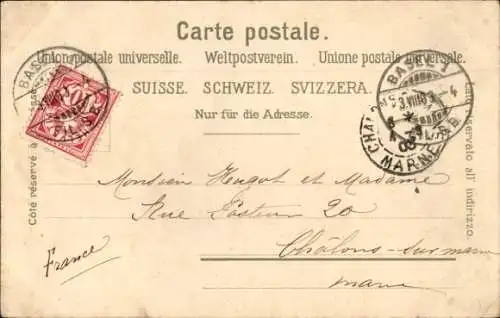 Carte postale.
Union postale universelle. Weltpostverein. Unione postale universale.
SUISSE. SCHWEIZ. SVIZZERA.
Nur für die Adresse.
Côté réservé à
Lato riservato all' indirizzo.
BASEL 1
BASEL 1
MARNE
10
Monsieur Hengot et Madame
Rue Pasteur 20
Châlons-sur-marne
marne
France